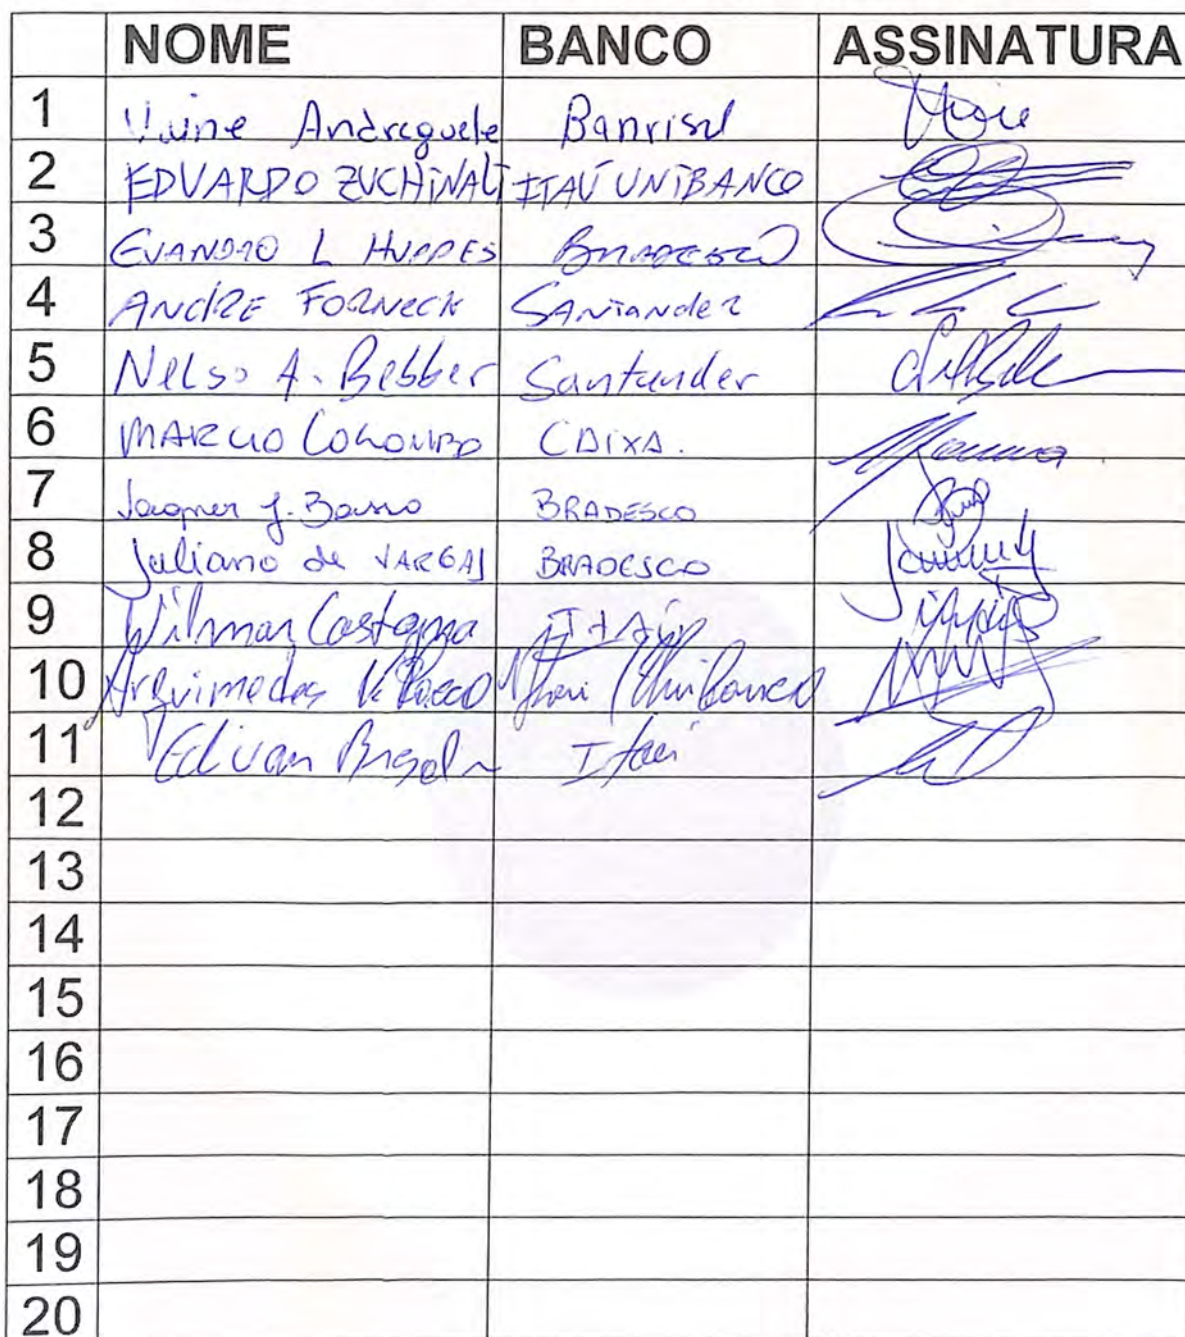 NOME BANCO ASSINATURA
1 Andreguete Banrisul
2 EDUARDO ZUCHINALI ITAÚ UNIBANCO
3 EVANDRO L HUPPES BRADESCO
4 ANDRE FORNECK SANTANDER
5 Nelso A. Bebber Santander
6 MARCIO COLOMBO CAIXA.
7 Jagner J. Basso BRADESCO
8 Juliano de VARGAS BRADESCO
9 Wilmar Castagna ITAÚ
10 Arquimedes Itaú Unibanco
11 Edivan Itaú
12
13
14
15
16
17
18
19
20